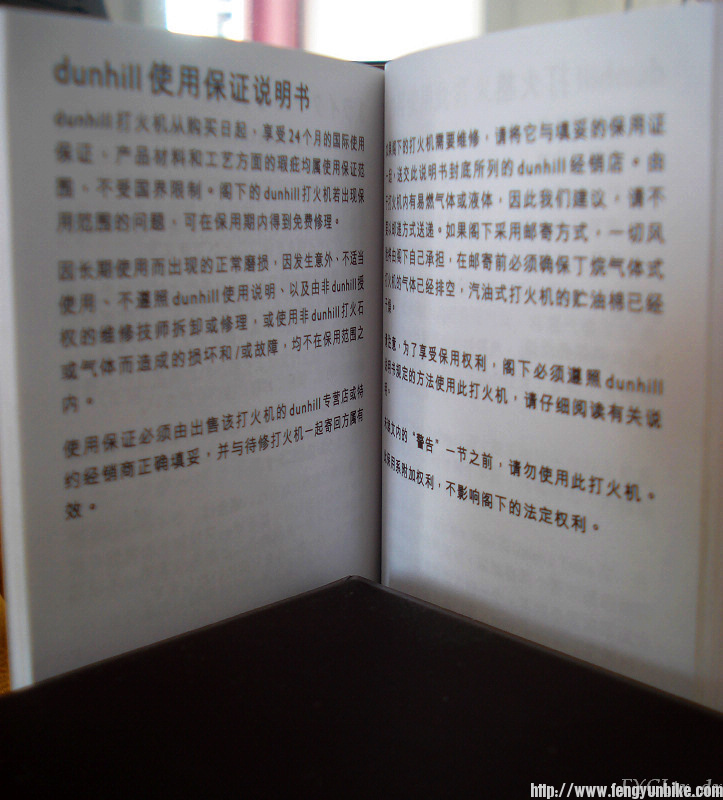 dunhill 使用保证说明书
dunhill 打火机从购买日起，享受24个月的国际使用
保证、产品材料和工艺方面的瑕疵均属使用保证范
围、不受国界限制。阁下的dunhill打火机若出现保
用范围的问题，可在保用期内得到免费修理。
因长期使用而出现的正常磨损，因发生意外、不适当
使用、不遵照dunhill使用说明、以及由非dunhill授
权的维修技师拆卸或修理，或使用非dunhill打火石
或气体而造成的损坏和/或故障，均不在保用范围之
内。
使用保证必须由出售该打火机的dunhill专营店或特
约经销商正确填妥，并与待修打火机一起寄回方属有
效。
阁下的打火机需要维修，请将它与填妥的保用证
一起，送交此说明书封底所列的dunhill经销店。由
打火机内有易燃气体或液体，因此我们建议，请不
邮递方式送递。如果阁下采用邮寄方式，一切风
将由阁下自己承担，在邮寄前必须确保丁烷气体式
打火机的气体已经排空，汽油式打火机的贮油棉已经
干燥。
注意，为了享受保用权利，阁下必须遵照dunhill
说明书规定的方法使用此打火机，请仔细阅读有关说
明。
文内的“警告”一节之前，请勿使用此打火机。
保用系附加权利，不影响阁下的法定权利。
http://www.fengyunbike.com